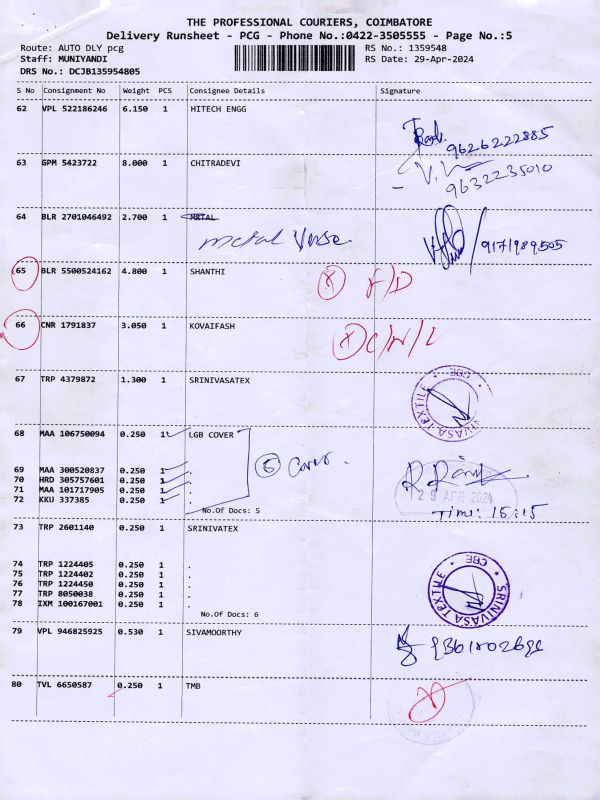 THE PROFESSIONAL COURIERS, COIMBATORE
Delivery Runsheet - PCG - Phone No.:0422-3505555 - Page No.:5
Route: AUTO DLY pcg RS No.: 1359548
Staff: MUNIYANDI RS Date: 29-Apr-2024
DRS No.: DCJB135954805
S No Consignment No Weight PCS Consignee Details Signature
62 VPL 522186246 6.150 1 HITECH ENGG
9626222885
63 GPM 5423722 8.000 1 CHITRADEVI
9632235010
64 BLR 2701046492 2.700 1 METAL
metal Verse
9171989505
65 BLR 5500524162 4.800 1 SHANTHI F/D
66 CNR 1791837 3.050 1 KOVAIFASH
67 TRP 4379872 1.300 1 SRINIVASATEX
SRINIVASA TEXTILE CBE
68 MAA 106750094 0.250 1 LGB COVER
69 MAA 300520837 0.250 1 .
70 HRD 305757601 0.250 1 .
71 MAA 101717905 0.250 1 .
72 KKU 337385 0.250 1 .
5 Cover.
29 APR 2024
No.Of Docs: 5
Time: 15:15
73 TRP 2601140 0.250 1 SRINIVATEX
74 TRP 1224405 0.250 1 .
75 TRP 1224402 0.250 1 .
76 TRP 1224450 0.250 1 .
77 TRP 8050038 0.250 1 .
78 IXM 100167001 0.250 1 .
No.Of Docs: 6
SRINIVASA TEXTILE CBE
79 VPL 946825925 0.530 1 SIVAMOORTHY
80 TVL 6650587 0.250 1 TMB